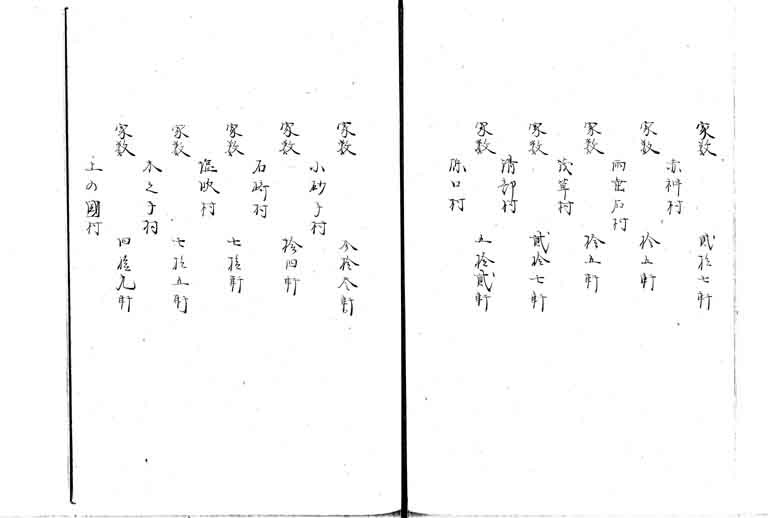 家数 貳拾七軒
赤神村
家数 拾五軒
雨垂石村
家数 拾五軒
茂草村
家数 貳拾七軒
清部村
家数 五拾貳軒
原口村
家数 拾叁軒
小砂子村
家数 拾四軒
石崎村
家数 七拾軒
塩吹村
家数 七拾五軒
木之子村
家数 四拾九軒
上の國村